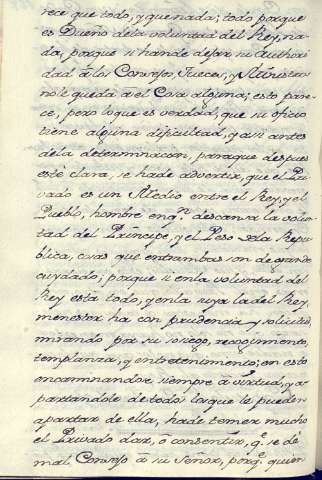 rece que todo, y que nada; todo porque
es Dueño dela voluntad del Rey, na-
da, porque si hande dejar su Authori
dad a los Consejos, Jueces, y Ministros
no le queda a el Cosa alguna; esto pare-
ce, pero loque es verdad, que su oficio
tiene alguna dificultad, y asi antes
dela determinacion, paraque despues
esté clara, se hade advertir, que el Pri
vado es un Medio entre el Rey, y el
Pueblo, hombre en q.n descansa la volun
tad del Principe, y el Peso dela Repu
blica, cosas que entrambas son de grande
cuydado; porque si enla voluntad del
Rey esta todo, y enla suya la del Rey,
menester ha con prudencia, y solicitud,
mirando por su sosiego, recogimiento,
templanza, y entretenimiento; en esto
encaminandose siempre a virtud, y a-
partandole de todo loque le pueden
apartar de ella, hade temer mucho
el Privado dar, ó consentir, q.e se dé
mal Consejo a su Señor, porq.e quien